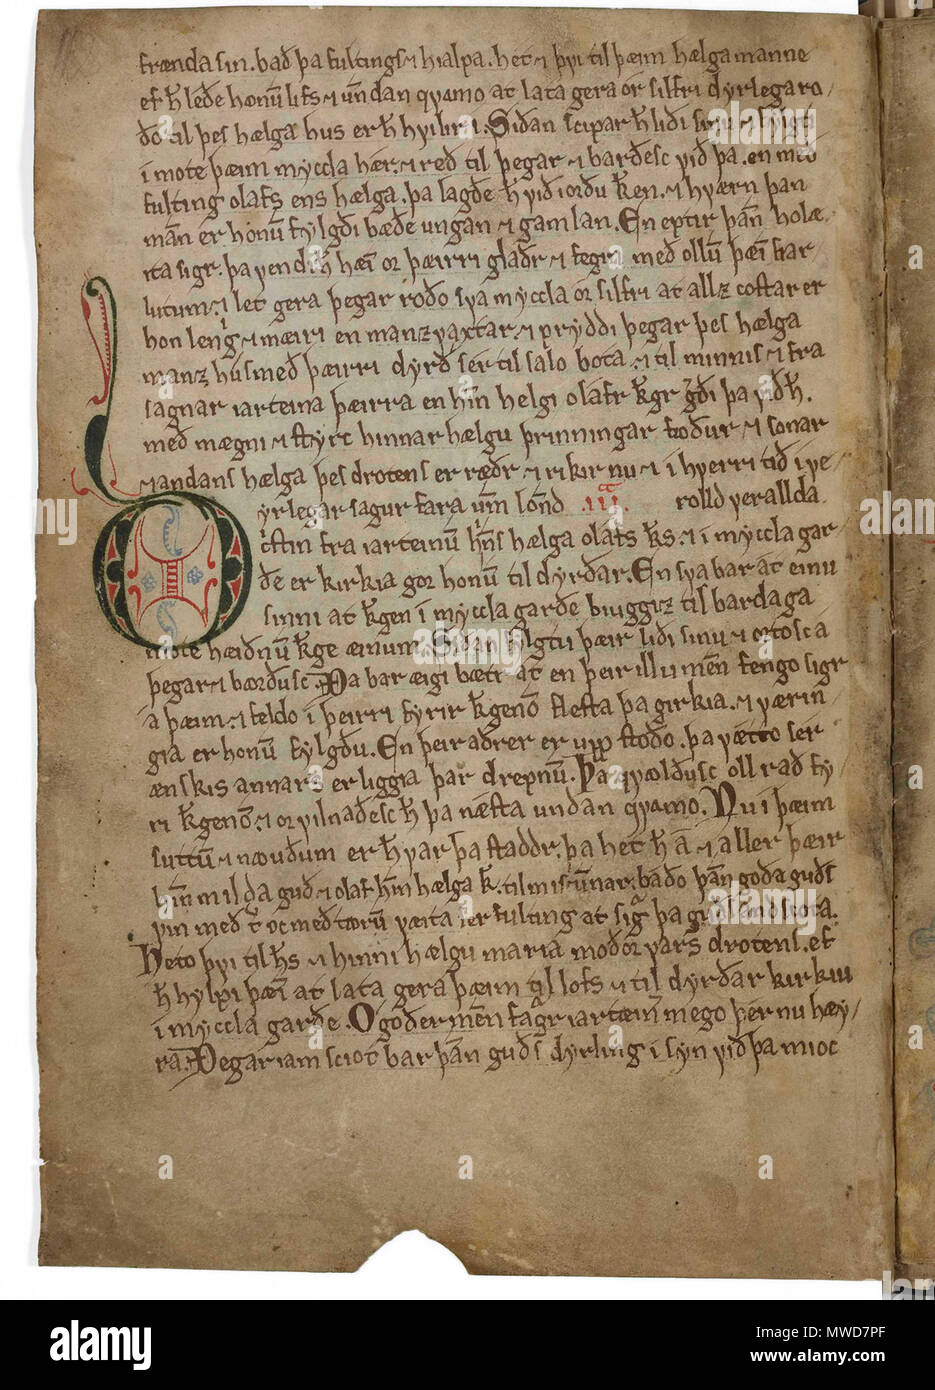 frænda sin. bað þa fultings ⁊ hialpa. het ⁊ þvi til þæim hælga manne
ef h̅ leðe honu̅ lifs ⁊ undan qvamo at lata gera ór silfri dyrlega ro/
ðo til þes hælga hus er h̅ hvilir i. Siðan scipar h̅ liði sinu ⁊ fylgt
i mote þæim myccla hær. ⁊ reð til þegar ⁊ barðesc við þa. en með
fulting olafs ens hælga. þa lagðe h̅ við iorðu k̅gen. ⁊ hværn þan
man̅ er honu̅ fylgði bæðe ungan ⁊ gamlan. En eptir þan̅ holæ/
ita sigr. þa vendir h̅ hæi̅ or þæirri glaðr ⁊ fegin með ollu̅ þæi̅ scar/
lutum. ⁊ let gera þegar roðo sva myccla ór silfri at allz costar er
hon lengri ⁊ mæiri en manz vaxtar. ⁊ pryddi þegar þes hælga
manz hus með þæirri dyrð ser til salo bota. ⁊ til minnis ⁊ fra
sagnar iarteina þæirra en hin̅ helgi olafr k̅gr gerði þa við h̅.
með mægni ⁊ styrc hinnar hælgu þrinningar foður ⁊ sonar
⁊ andans hælga þes drotens er ræðr ⁊ rikir nu ⁊ i hverri tið i ve/
yrlegar sagur fara um̅ lond .iii. rolld verallda.
c̅stin fra iarteinu̅ hins hælga olafs k̅s. ⁊ i myccla gar/
ðe er kirkia gor honu̅ til dyrðar. En sva bar at einu
sinni at k̅gen i myccla garðe biuggiz til bardaga
mote hæiðnu̅ k̅ge æinum. Siðan fylgtu þæir liði sinu ⁊ orto sc a
þegar ⁊ børðusc. Þa bar æigi bætr at en þeir illu men̅ fengo sigr
a þæim. ⁊ feldo i þeirri fyrir k̅geno̅ flesta þa girkia. ⁊ værin/
gia er honu̅ fylgðu. En þeir aðrer er upp stoðo. þa vætto ser
ænskis annars er liggia þar drepnu̅. Þa qvolðusc oll rað fy/
ri k̅geno̅. ⁊ orvilnaðesc h̅ þa næsta undan qvamo. Nu i þæim
suttu̅ ⁊ nauðum er h̅ var þa staddr. þa het h̅ a ⁊ aller þæir
hin̅ milda guð ⁊ olaf hin̅ hælga k̅. til miscunnar. baðo þan̅ goða guðs
vin með oc með tøru̅ væita ser fulting at sigra þa guðs andscota.
Heto þvi til h̅s ⁊ hinni hælgu maria moðor vars drotens. ef
h̅ hylpi þæi̅ at lata gera þæim til lofs ⁊ til dyrðar kirkiu
i myccla garðe. O goðer men̅ fagr iartæin̅ mego þer nu hæy/
ra. Þegar iam sciot bar þan̅ guðs dyrling i syn við þa mioc
alamy
Image ID: MWD7PF
www.alamy.com